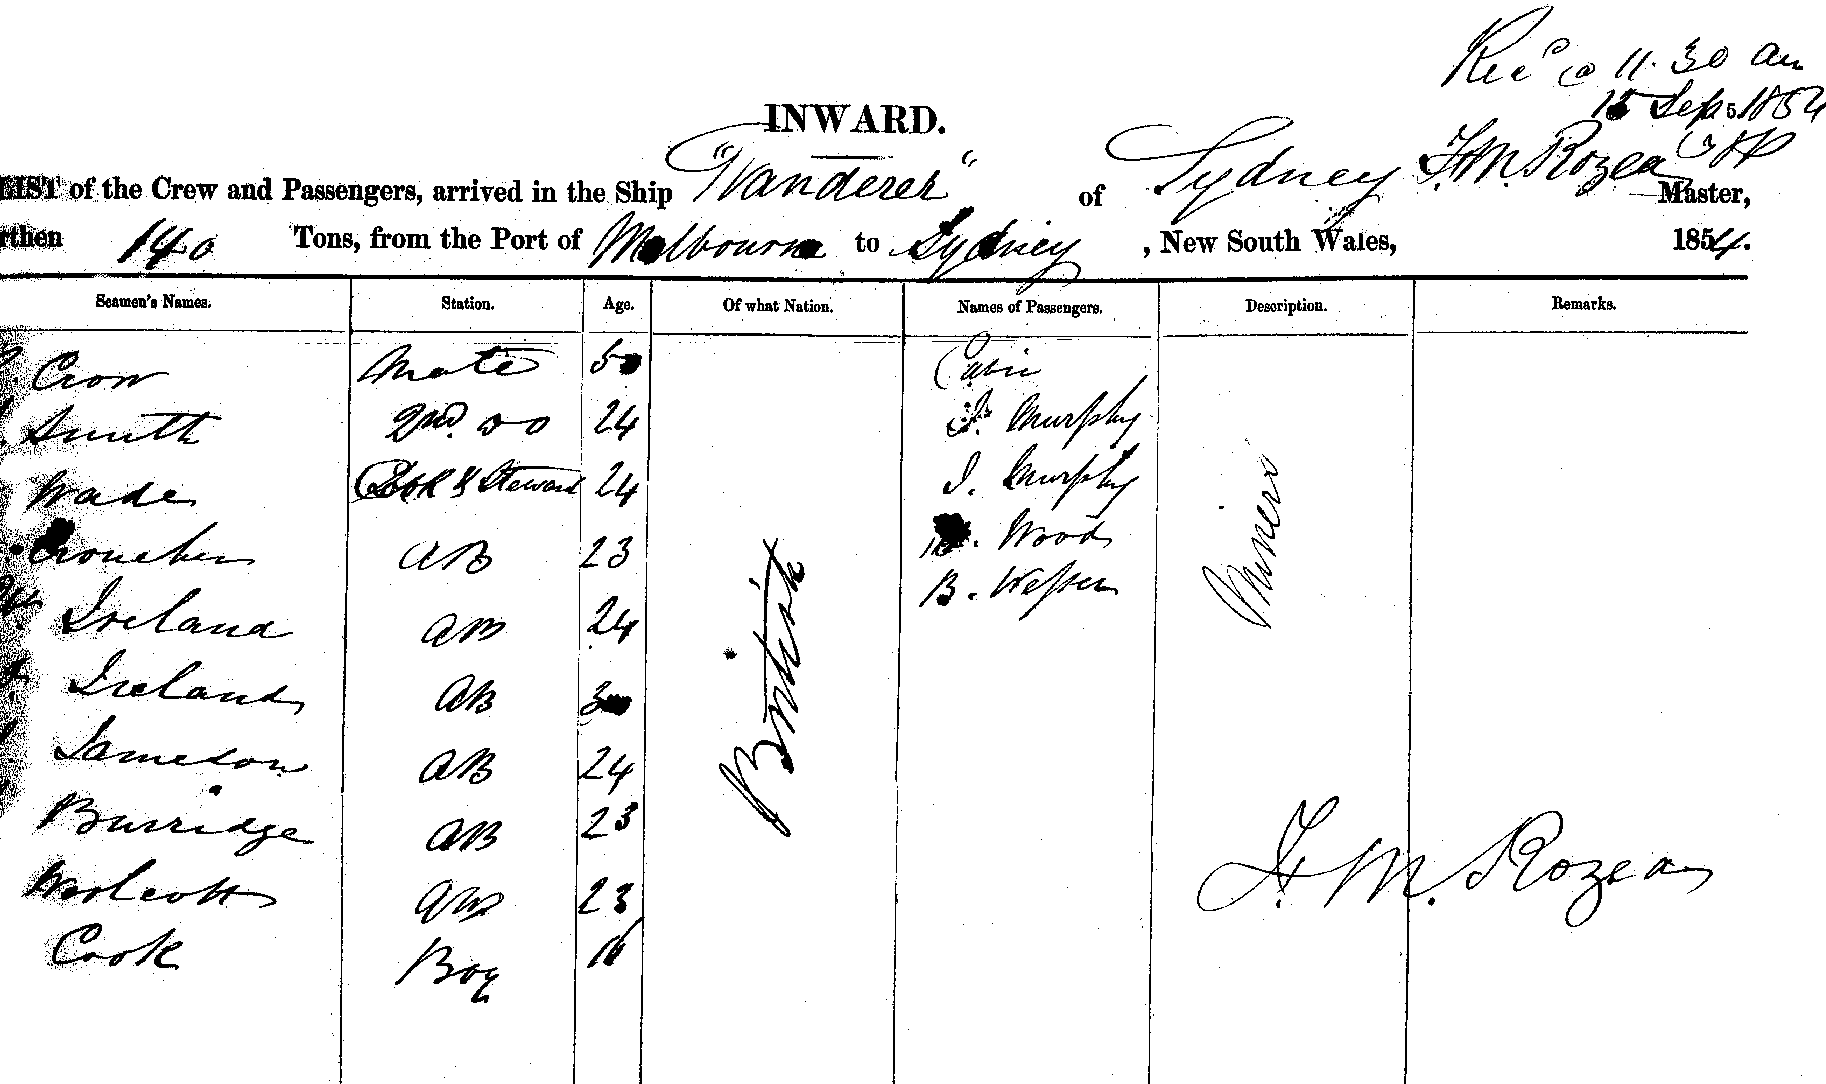 Rec'd @ 11.30 am
15 Sep. 1854
INWARD.
LIST of the Crew and Passengers, arrived in the Ship "Wanderer" of Sydney F. M. Rozea Master,
rthen 140 Tons, from the Port of Melbourne to Sydney, New South Wales, 1854.
Seamen's Names. Station. Age. Of what Nation. Names of Passengers. Description. Remarks.
Crow Mate 50 Cabin
Smith 2nd. do 24 Murphy
Wade Cook & Steward 24 J. Murphy
Croucher AB 23 Wood
Ireland AB 24 B. Wessen
Ireland AB 30
Jameson AB 24
Burridge AB 23
Woolcott AB 23
Cook Boy 16
British
Miners
F. M. Rozea